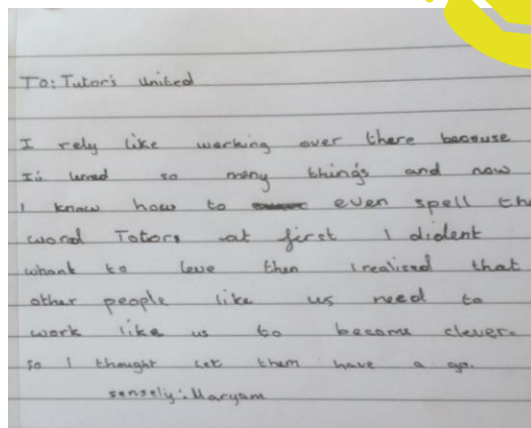 To: Tutors united
I rely like working over there because
I'v lerned so meny things and now
I know how to even spell the
word Totors at first I dident
whant to leve then I realised that
other people like us need to
work like us to become clever.
so I thought let them have a go.
sensely: Maryam